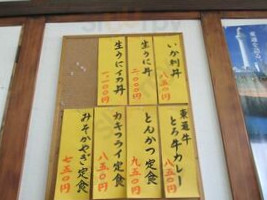 いか刺丼
八五〇円
生うに丼
二、〇〇〇円
生うにイカ丼
一、〇〇〇円
東通牛
とろ牛カレー
八五〇円
とんかつ定食
九五〇円
カキフライ定食
八五〇円
みそかやき定食
七五〇円